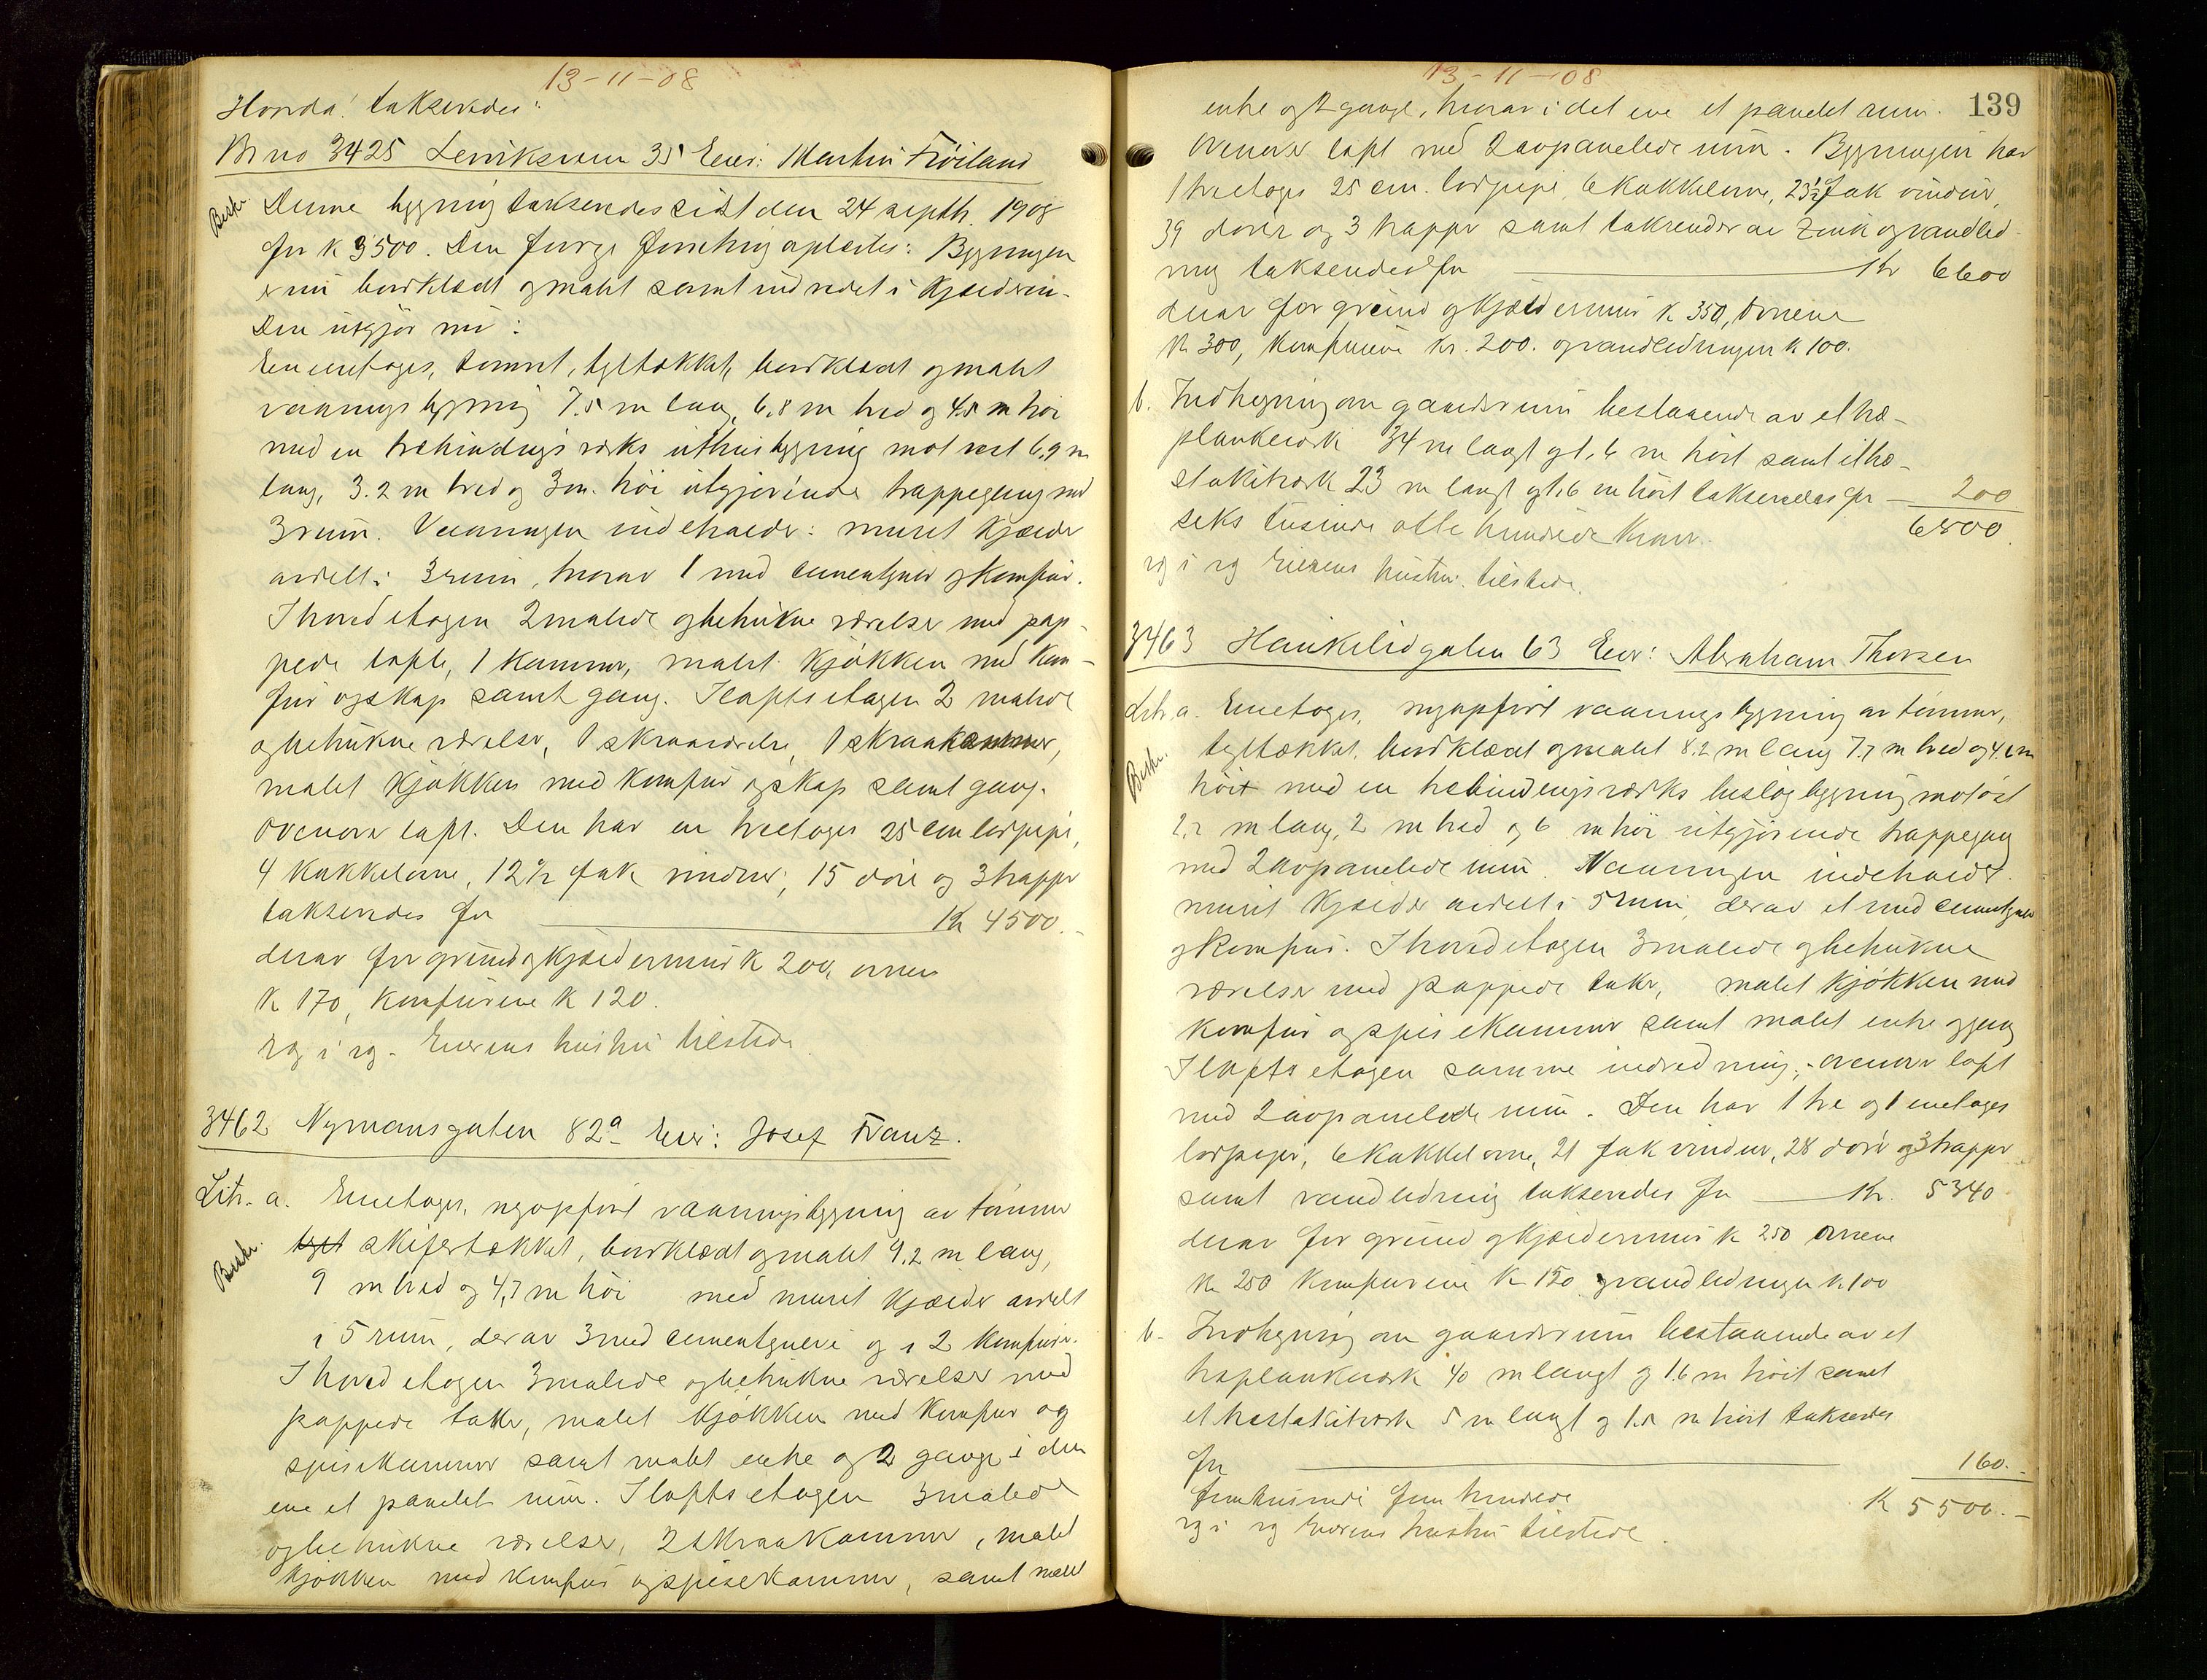 13-11-08
takseredes:
Br no 3425 35 Eier: Martin Fröiland
Beskr.
Denne bygning takseredes sidst den 24 septbr. 1908
for k 3500. Den forrige forretning oplæstes: Bygningen
er nu bordklædt og malet samt indredet i Kjælderen.
Den utgjör nu:
En enetages, tømret, tegltækket, bordklædt og malet
vaaningsbygning 7.5 m lang, 6,8 m bred og 4.5 m höi
med en trebindingsværks uthusbygning mot vest 6.9 m
lang, 3.2 m bred og 3 m. höi utgjörende trappegang med
3 rum. Vaaningen indeholder: muret Kjælder
avdelt i 3 rum, hvorav 1 med cementgulv og Komfur.
I hovedetagen 2 malede og betrukne værelser med pap-
pede lofte, 1 Kammer, malet Kjökken med Kom-
fur og skap samt gang. I loftsetagen 2 malede
og betrukne værelser, 1 skraaværelse, 1 skraakammer,
malet Kjökken med Komfur og skap samt gang.
Ovenover loft. Den har en treetages 25 cm lerpipe,
4 Kakkelovne, 12½ fak vinduer, 15 döre og 3 trapper
takseredes for Kr 4500.-
derav for grund og Kjældermur k 200, ovnene
k 170, Komfurene k 120.
rg i rg. Eierens hustru tilstede.
3462 Nymansgaten 82a Eier: Josef Franz.
Litr. a. Enetages, nyopfört vaaningsbygning av tömmer
Beskr.
tegl skifertækket, bordklædt og malet 9.2 m lang,
9 m bred og 4,7 m höi med muret Kjælder avdelt
i 5 rum, derav 3 med cementgulv og i 2 Komfurer.
I hovedetagen 3 malede og betrukne værelser med
pappede takr, malet Kjökken med Komfur og
spisekammer samt malet entre og 2 gange i den
ene et panelet rum. I loftsetagen 3 malede
og betrukne værelser, 2 skraakammer, malet
Kjökken med Komfur og spisekammer, samt malet
13-11-08
139
entre og 2 gange, hvorav i det ene et panelet rum.
Ovenover loft med 2 avpanelede rum. Bygningen har
1 treetages 25 cm. lerpipe, 6 Kakkelovne, 23½ fak vinduer,
39 dörer og 3 trapper samt takrender av Zink og vandled-
ning takseredes for Kr 6600
derav for grund og Kjældermur k 350, Ovnene
k 300, Komfurene kr. 200. og vandledningen k 100.
b. Indhegning om gaardsrum bestaaende av et træ-
plankeværk 34 m langt og 1,6 m höit samt et træ-
stakitværk 23 m langt og 1.6 m höit takseredes for — 200
seks tusinde otte hundrede kroner. 6800.
rg i rg Eierens hustru tilstede.
3463 Haukeligaten 63 Eier: Abraham Thorsen
Litr. a. Enetages, nyopfört vaaningsbygning av tömmer,
Beskr.
tegltækket, bordklædt og malet 8.2 m lang 7.7 m bred og m
höi med en trebindingsværks beslagbygning mot öst
m lang, 2 m bred og 6 m höi utgjörende trappegang
med 2 avpanelede rum. Vaaningen indeholder.
muret Kjælder avdelt i 5 rum, derav et med cementgulv
og Komfur. I hovedetagen 3 malede og betrukne
værelser med pappede takr, malet Kjökken med
Komfur og spisekammer samt malet entre og gang
I loftsetagen samme indredning, - ovenover loft
med 2 avpanelede rum. Den har 1 tre og 1 enetages
lerpiper, 6 Kakkelovne, 21 fak vinduer, 28 dörer og 3 trapper
samt vandledning takseredes for Kr. 5340
derav for grund og Kjældermur k 250 Ovnene
kr 250 Komfurene k 150 og vandledningen k 100
b. Indhegning om gaardsrum bestaaende av et
træplankeværk 40 m langt og 1.6 m höit samt
et træstakitværk 5 m langt og 1.5 m höit takseredes
for 160.-
femtusinde fem hundrede K 5500.-
rg i rg Eierens hustru tilstede.